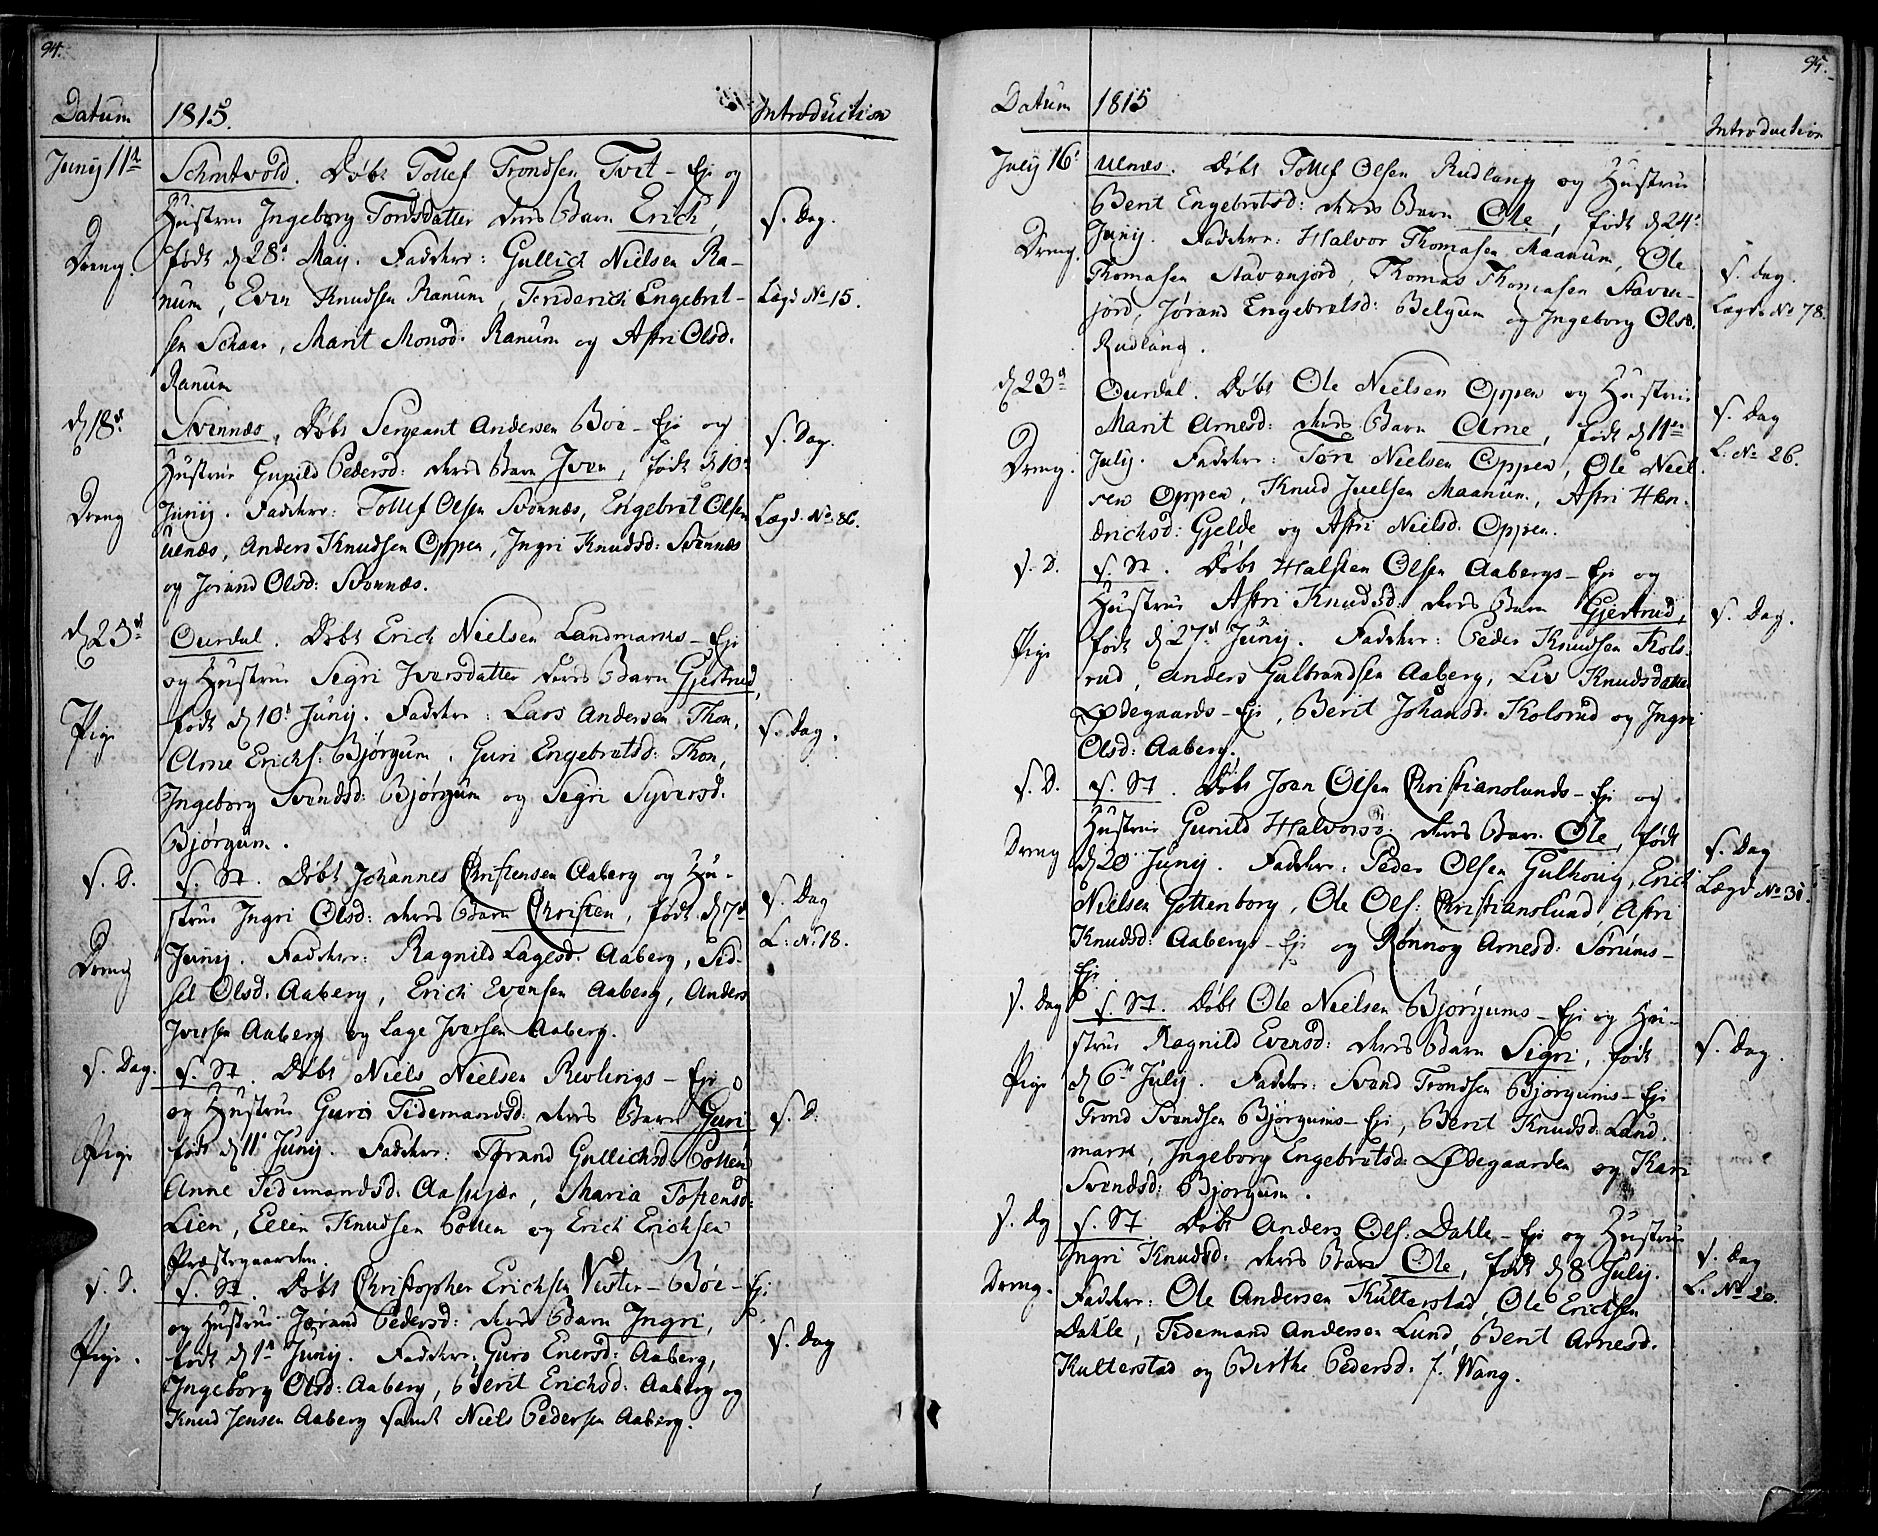 94.
Datum 1815. Introduction
Junij 11te Schrutvold. Døbt Tollef Trondsen Tvet-Eje og
Hustrue Ingeborg Tordsdatter deres Barn Erich, s. Dag.
Dreng. født d. 28de Maij. Faddere: Gullich Nielsen Ra-
num, Even Knudsen Ranum, Friderich Engebret- Lægd No 15.
sen Schaar, Marit Monsd. Ranum og Astri Olsd.
Ranum
d. 18de Svennæs. Døbt Sergeant Andersen Bøe-Eje og s. Dag.
Hustrue Gunild Pedersd: deres Barn Iven, født d. 10de
Dreng Junij. Faddere: Tollef Olsen Svennæs, Engebret Olsen Lægd. No. 86.
Ulnæs, Anders Knudsen Oppen, Ingri Knudsd: Svennæs
og Jørand Olsd: Svennæs.
d. 25de Ourdal. Døbt Erich Nielsen Landmarks-Eje
og Hustrue Segri Iversdatter deres Barn Gjertrud,
Pige født d. 10de Junij. Faddere: Lars Andersen Thon, s. Dag.
Arne Erichs: Bjørgum, Guri Engebretsd: Thon,
Ingeborg Svendsd: Bjørgum og Segri Syversd.
Bjørgum.
s. D. s. St. Døbt Johannes Christensen Aaberg og Hu- s. Dag
strue Ingri Olsd: deres Barn Christen, født d. 7de
Dreng Junij. Faddere: Ragnild Lagesd: Aaberg, Sid- L: No 18.
sel Olsd: Aaberg, Erich Evensen Aaberg, Anders
Iversen Aaberg og Lage Iversen Aaberg.
s. Dag. s. St. Døbt Niels Nielsen Revlings-Eje
og Hustrue Guri Tidemandsd: deres Barn Guri s. D.
Pige født d. 11te Junij. Faddere: Tørand Gullichsd: Potten
Anne Tidemandsd: Aassjær, Maria Tostensd:
Lien, Ellin Knudsen Potten og Erich Erichsen
Præstegaarden.
s. D. s. St. Døbt Christopher Erichsen Vester-Bøe-Eje
og Hustrue Jørand Pedersd: deres Barn Ingri,
Pige. født d. 1te Junij. Faddere: Guro Enersd: Aaberg, s. Dag
Ingeborg Olsd: Aaberg, Berit Erichsd: Aaberg og
Knud Jensen Aaberg samt Niels Pedersen Aaberg.
95.
Datum 1815 Introduction
Julij 16de Ulnæs. Døbt Tollef Olsen Rudlang og Hustrue
Berit Engebretsd: deres Barn Ole, født d. 24de
Dreng. Junij. Faddere: Halvor Thomasen Maanum, Ole
Thomasen Stavenjord, Thomas Thomasen Staven- s. Dag.
jord, Jørand Engebretsd: Belgum og Ingeborg Olsd. Lægd. No 78.
Rudlang.
d. 23de Ourdal. Døbt Ole Nielsen Oppen og Hustrue
Marit Arnesd: deres Barn Arne, født d. 11te s. Dag
Dreng. Julij. Faddere: Tore Nielsen Oppen, Ole Niel- L. No 26.
sen Oppen, Knud Juelsen Maanum, Astri Hen-
drichsd: Gjelde og Astri Nielsd. Oppen.
s. D. s. St. Døbt Halsten Olsen Aabergs-Eje og
Hustrue Astri Knudsd: deres Barn Gjertrud, s. Dag.
Pige født d. 27de Junij. Faddere: Peder Knudsen Kols-
rud, Anders Gulbrandsen Aaberg, Liv Knudsdatter
Ødegaards-Eje, Berit Johansd: Kolsrud og Ingri
Olsd: Aaberg.
s. D. s. St. Døbt Joen Olsen Christianslunds-Eje og
Hustrue Gunild Halvorsd: deres Barn Ole, født
Dreng d. 20 Junij. Faddere: Peder Olsen Gulhoug, Erich s. Dag
Nielsen Gottenborg, Ole Ols: Christianslund, Astri Lægd No 31.
Knudsd: Aabergs-Eje og Rønnog Arnesd: Sørums-
Eje.
s. Dag s. St. Døbt Ole Nielsen Bjørgums-Eje og Hu-
strue Ragnild Evensd: deres Barn Sigri, født s. Dag.
Pige d. 6te Julij. Faddere: Svend Trondsen Bjørgums-Eje
Trond Svendsen Bjørgums-Eje, Berit Knudsd: Land-
mark, Ingeborg Engebretsd: Ødegaarden og Kari
Svendsd: Bjørgum.
s. Dg s. St Døbt Anders Ols: Dahle-Eje og Hustrue
Ingri Knudsd: deres Barn Ole, født d. 8 Julij. s. Dag
Dreng. Faddere: Ole Andersen Kulterstad, Ole Erichsen L. No 20.
Dahle, Tidemand Andersen Lund, Berit Arnesd.
Kulterstad og Berthe Pedersd. f. Wang.